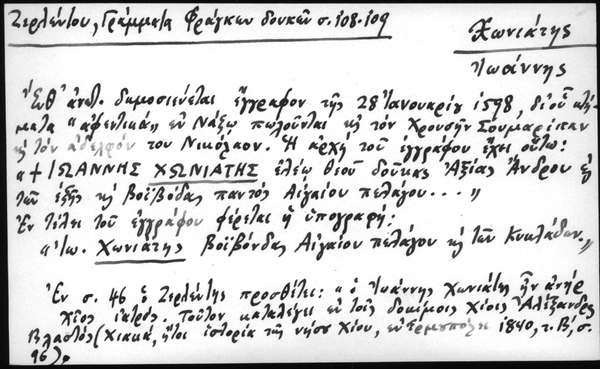 Ζερλέντου, Γράμματα Φράγκων δουκῶν σ. 108-109
Χωνιάτης
Ἰωάννης
Ἔνθ' ἀνωτ. δημοσιεύεται ἔγγραφον τῆς 28 Ἰανουαρίου 1598, δι' οὗ κτή-
ματα "ἀφεντικά" ἐν Νάξῳ πωλοῦνται εἰς τὸν Χρουσῆν Σουμαρίπαν
κ τὸν ἀδελφόν του Νικόλαον. Ἡ ἀρχὴ τοῦ ἐγγράφου ἔχει οὕτω:
"+ ΙΩΑΝΝΗΣ ΧΩΝΙΑΤΗΣ ἐλέῳ θεοῦ δούκας Ἀξίας Ἄνδρου κ
τῶν ἑξῆς κ βοϊβόδας παντὸς Αἰγαίου πελάγου . . . "
Ἐν τέλει τοῦ ἐγγράφου φέρεται ἡ ὑπογραφή:
"Ἰω. Χωνιάτης βοϊβόνδας Αἰγαίου πελάγου κ τῶν Κυκλάδων."
Ἐν σ. 46 ὁ Ζερλέντης προσθέτει: "ὁ Ἰωάννης Χωνιάτης ἦν ἀνὴρ
Χῖος ἰατρός. Τοῦτον καταλέγει ἐν τοῖς δοκίμοις Χίοις Ἀλέξανδρος
Βλαστός (Χιακά, ἤτοι ἱστορία τῆς νήσου Χίου, ἐν Ἑρμουπόλει 1840, τ. Β', σ.
96).